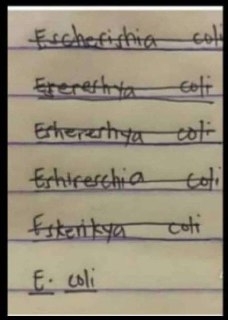 Escherishia coli
Erereshya coli
Eshereshya coli
Eshireschia coli
Eskerikya coli
E. coli